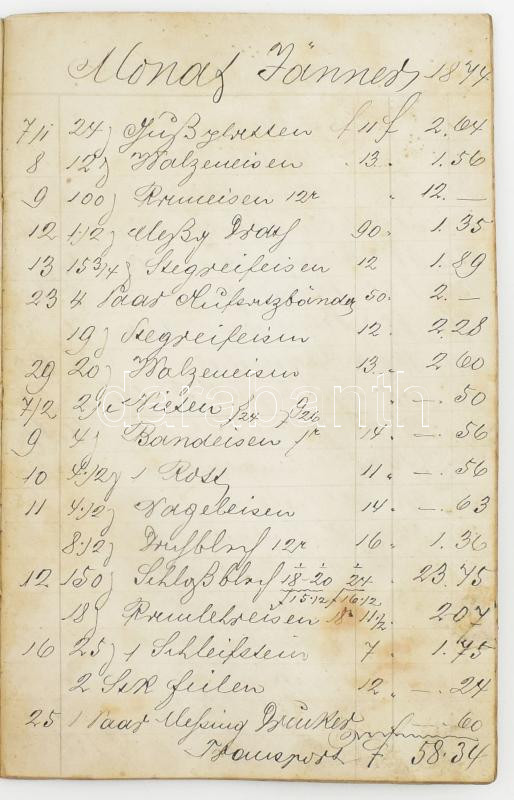 Monat Jänner 1874
7/1 24 Gußplatten f 11 f 2.64
8 12 Walzeneisen 13. 1.56
9 100 12r " 12.—
12 1·1/2 Draht 90. 1.35
13 15 3/4 Stegreifeisen 12 1.89
23 4 Paar Aufsatzbänder 50. 2.—
19 Stegreifeisen 12. 2.28
29 20 Walzeneisen 13. 2 60
7/2 2 Nieten 1/24 9/26 " —. 50
9 4 Bandeisen 14. —. 56
10 4·1/2 1 Rost 11 " —. 56
11 4·1/2 Nageleisen 14 " —. 63
8·1/2 12r 16 " 1.36
12 150 Schloßblech 18–20 24 " 23.75
15·1/2 16·1/2
18 18r 11 1/2 207
16 25 1 Schleifstein 7 " 1.75
2 Stk feilen 12 " —. 24
25 1 Paar Messing Drücker —. 60
Transport f 58.34
darabanth